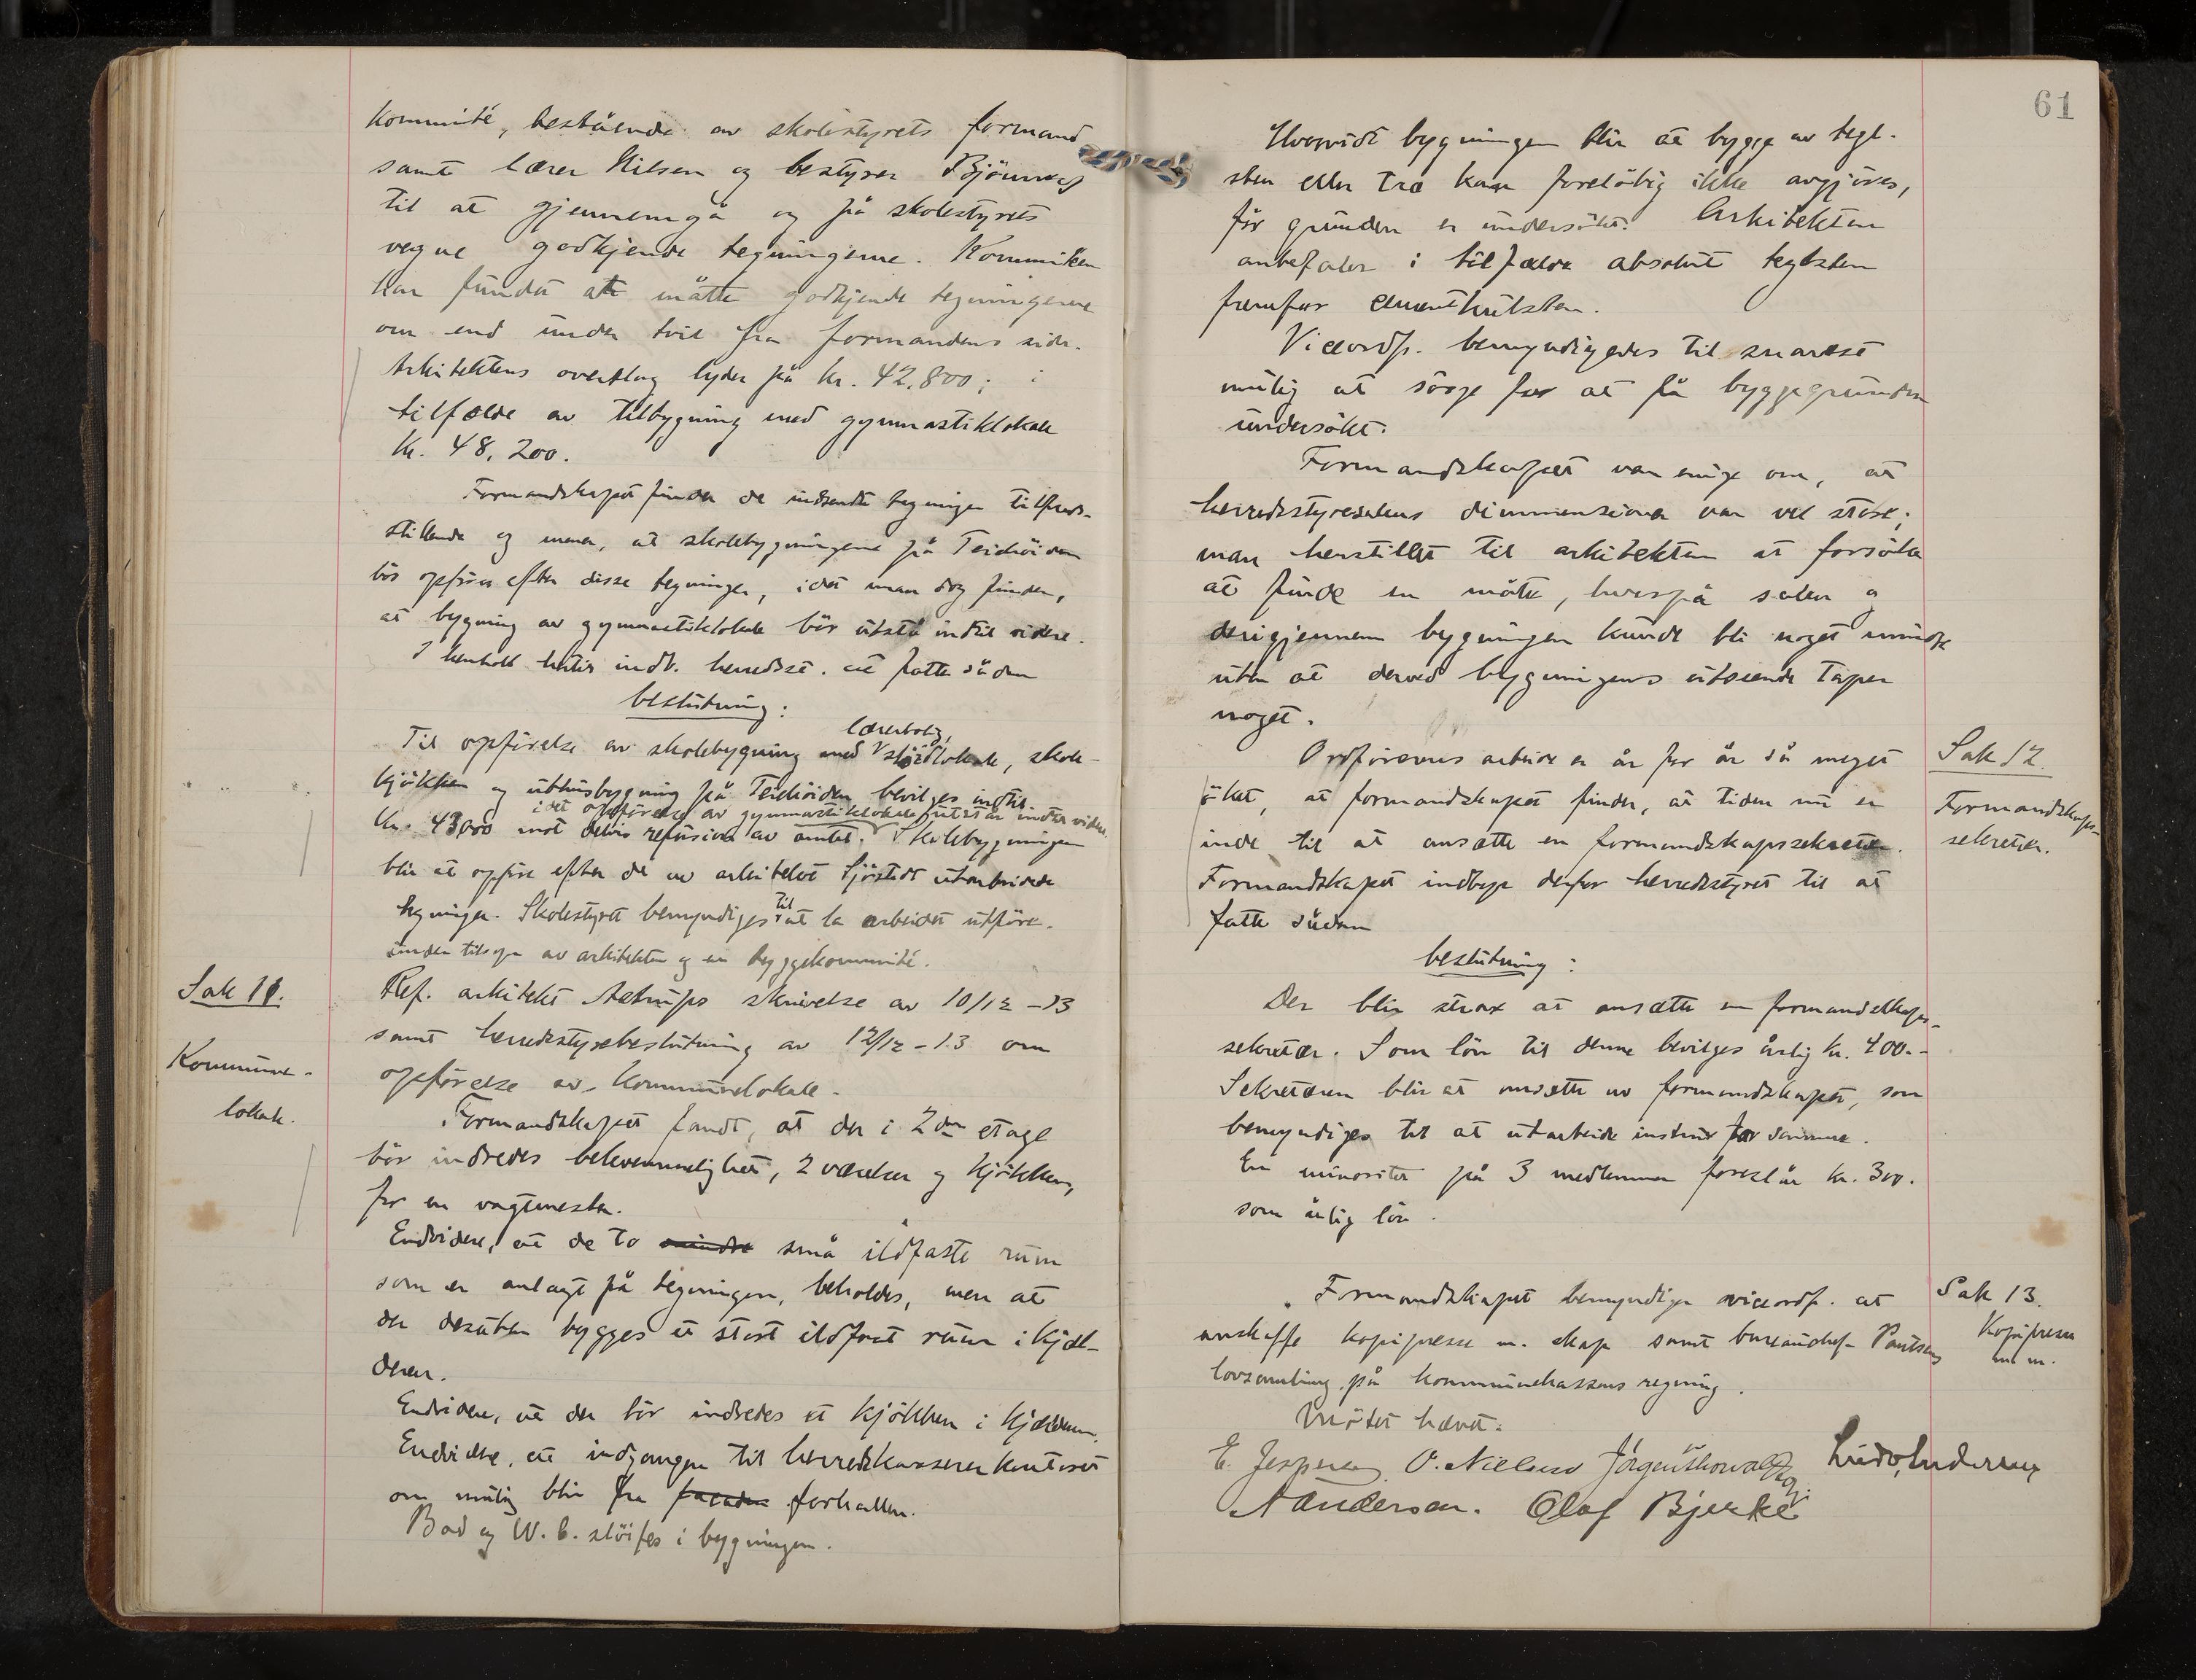 kommité, bestående av skolestyrets formand
samt lærer Nilsen og bestyrer
til at gjennemgå og på skolestyrets
vegne godkjende tegningerne. Kommiteen
har fundet at måtte godkjende tegningerne
om end under tvil fra formandens side.
Arkitektens overslag lyder på kr. 42,800; i
tilfælde av tilbygning med gymnastiklokale
kr. 48,200.
Formandskapet finder de indsendte tegninger tilfreds-
stillende og mener, at skolebygningerne på Teiehöiden
bör opföres efter disse tegninger, idet man dog finder,
at bygning av gymnastiklokale bör utstå indtil videre.
I henhold hertil indb. herredsst. at fatte sådan
beslutning:
Til opförelse av skolebygning med lærerbolig, slöidlokale, skole-
kjökken og uthusbygning på Teiehöiden bevilges indtil
kr. 43000 mot delvis refusion av amtet, idet opförelse av gymnastiklokale utstår indtil videre. Skolebygningen
blir at opföre efter de av arkitekt Sjöstedt utarbeidede
tegninger. Skolestyret bemyndiges til at la arbeidet utföre
under tilsyn av arkitekten og en byggekommité.
Sak 11.
Kommune-
lokale.
Ref. arkitekt Astrups skrivelse av 10/12 -13
samt herredsstyrebeslutning av 12/12 - 13 om
opförelse av kommunelokale.
Formandskapet fandt, at der i 2den etage
bör indredes bekvemmelighet, 2 værelser og kjökken,
for en vagtmester.
Endvidere, at de to mindre små ildfaste rum
som er anlagt på tegningen, beholdes, men at
der desuten bygges et stort ildfast rum i kjæl-
deren.
Endvidere, at der bör indredes et kjökken i kjælderen.
Endvidere, at indgangen til herredskassererkontoret
om mulig blir fra facaden forhallen.
Bad og W.C. slöifes i bygningen.
61
Hvorvidt bygningen blir at bygge av tegl-
sten eller træ kan foreløbig ikke avgjöres,
för grunden er undersökt. Arkitekten
anbefaler i tilfælde absolut teglsten
fremfor cementhulsten.
Viceordf. bemyndigedes til snarest
mulig at sörge for at få byggegrunden
undersökt.
Formandskapet var enige om, at
herredsstyresalens dimmensioner var vel store;
man henstillet til arkitekten at forsöke
at finde en måte, hvorpå salen og
derigjennem bygningen kunde bli noget mindre
uten at derved bygningens utseende taper
noget.
Sak 12.
Formandskaps-
sekretær.
Ordförerens arbeide er år for år så meget
öket, at formandskapet finder, at tiden nu er
inde til at ansætte en formandskapssekretær.
Formandskapet indbyr derfor herredsstyret til at
fatte sådan
beslutning:
Der blir strax at ansætte en formandskaps-
sekretær. Som lön til denne bevilges årlig kr. 400.-
Sekretæren blir at ansætte av formandskapet, som
bemyndiges til at utarbeide instrux for samme.
En minoritet på 3 medlemmer foreslår kr. 300.
som årlig lön.
Sak 13.
Kopipresse
m.m.
Formandskapet bemyndiger viceordf. at
anskaffe kopipresse m. skap samt bureauchef Paulsens
lovsamling på kommunekassens regning.
Mötet hævet.
E. Jespersen O. Nielsen Jörgen
A Andersen. Olaf Bjerke